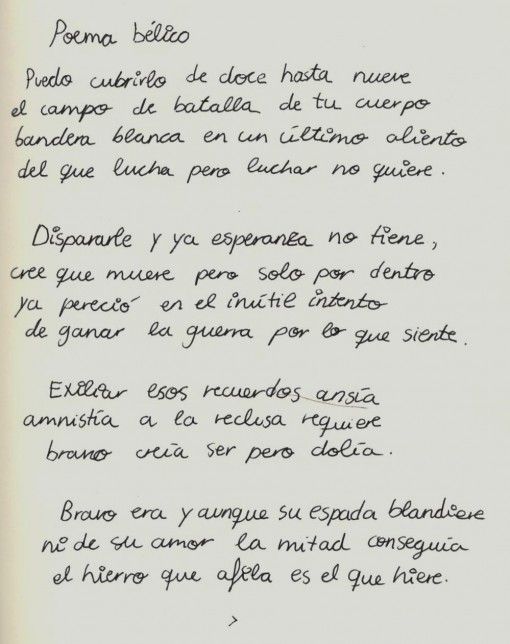 Poema bélico
Puedo cubrirlo de doce hasta nueve
el campo de batalla de tu cuerpo
bandera blanca en un último aliento
del que lucha pero luchar no quiere.
Dispararle y ya esperanza no tiene,
cree que muere pero solo por dentro
ya pereció en el inútil intento
de ganar la guerra por lo que siente.
Exiliar esos recuerdos ansía
amnistía a la reclusa requiere
bravo creía ser pero dolía.
Bravo era y aunque su espada blandiere
ni de su amor la mitad conseguía
el hierro que afila es el que hiere.
>